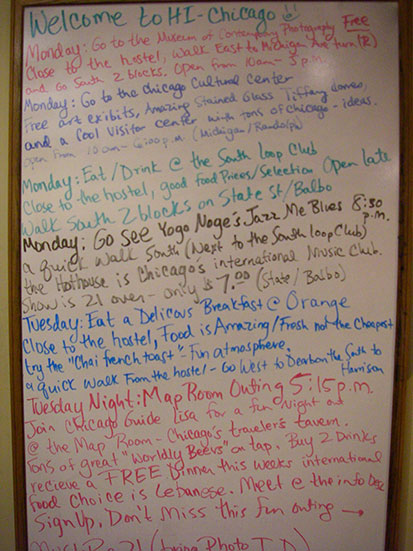 Welcome to HI-Chicago!!
Monday: Go to the Museum of Contemporary Photography Free
Close to the hostel, walk East to Michigan Ave turn (R)
and Go South 2 blocks. Open from 10am - 5 p.m.
Monday: Go to the Chicago Cultural Center
Free art exibits, Amazing Stained Glass Tiffany domes,
and a cool Visitor center with tons of Chicago - ideas.
open From 10am - 6:00p.m. (Michigan/Randolph)
Monday: Eat/Drink @ the South Loop Club
Close to the hostel, good food Prices/Selection Open late
Walk South 2 blocks on State St/Balbo
Monday: Go See Yoko Noge's Jazz Me Blues 8:30 p.m.
a quick walk South (Next to the South loop Club)
the Hothouse is Chicago's international Music Club.
Show is 21 over - only $7.00 (State/Balbo)
Tuesday: Eat a Delicous Breakfast @ Orange
Close to the hostel, Food is Amazing/Fresh not the Cheapest
try the "Chai french toast". Fun atmosphere.
a quick walk From the hostel - Go West to Dearborn then South to Harrison
Tuesday Night: Map Room Outing 5:15p.m.
Join Chicago Guide Lisa for a fun Night out
@ the Map Room - Chicago's traveler's tavern.
Tons of great "Worldly Beers" on tap. Buy 2 Drinks
recieve a FREE Dinner this weeks international
food choice is Lebanese. Meet @ the info Desk
Sign Up. Don't Miss this fun outing →
Must Be 21 (bring Photo I.D)